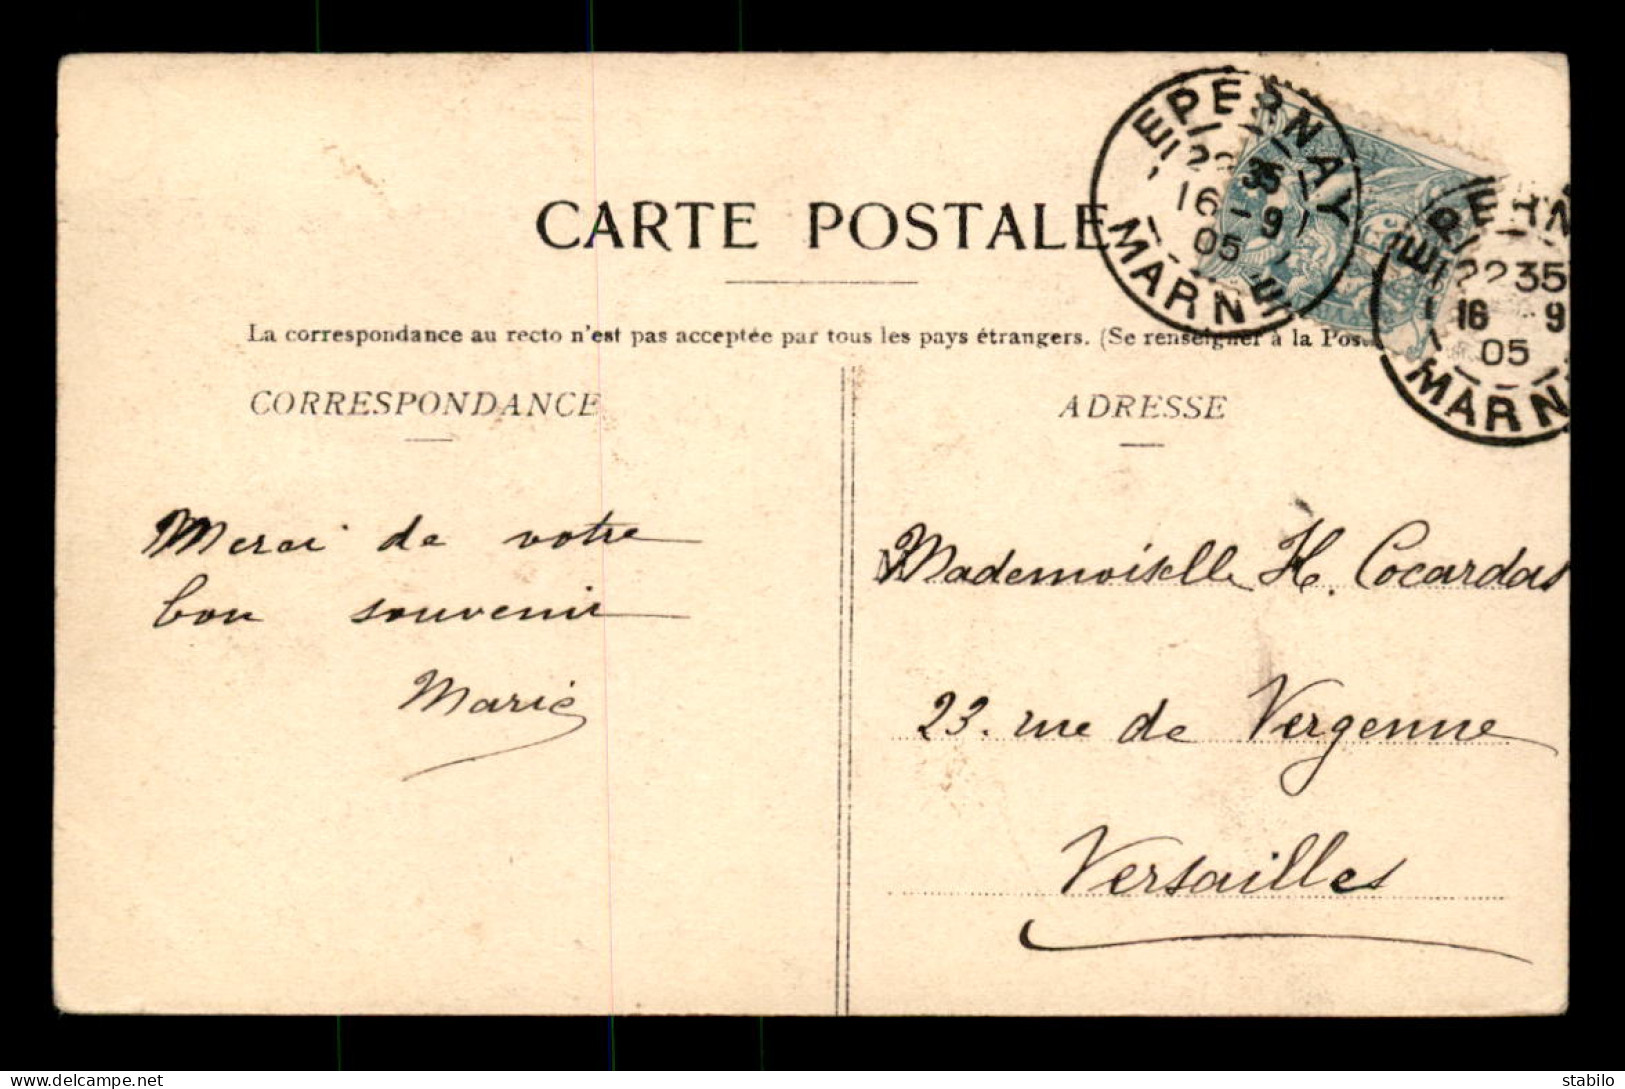 CARTE POSTALE
La correspondance au recto n'est pas acceptée par tous les pays étrangers. (Se renseigner à la Pos
CORRESPONDANCE
ADRESSE
EPERNAY
22 35
16 - 9
05
MARNE
EPERN
22 35
16 9
05
MARN
Merci de votre
bon souvenir
Marie
Mademoiselle H. Cocardas
23. rue de Vergenne
Versailles
delcampe.net
stabilo